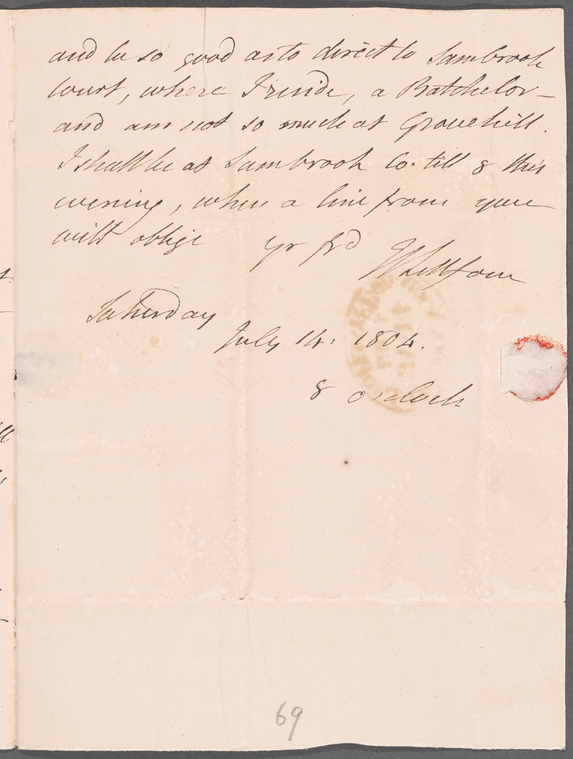 and be so good as to direct to Sambrook
Court, where I reside, a Batchelor –
and am not so much at Grovehill.
I shall be at Sambrook Co. till 8 this
evening, when a line from you
will oblige yr frd
JC Lettsom
Saturday
July 14. 1804.
8 o'clock
69